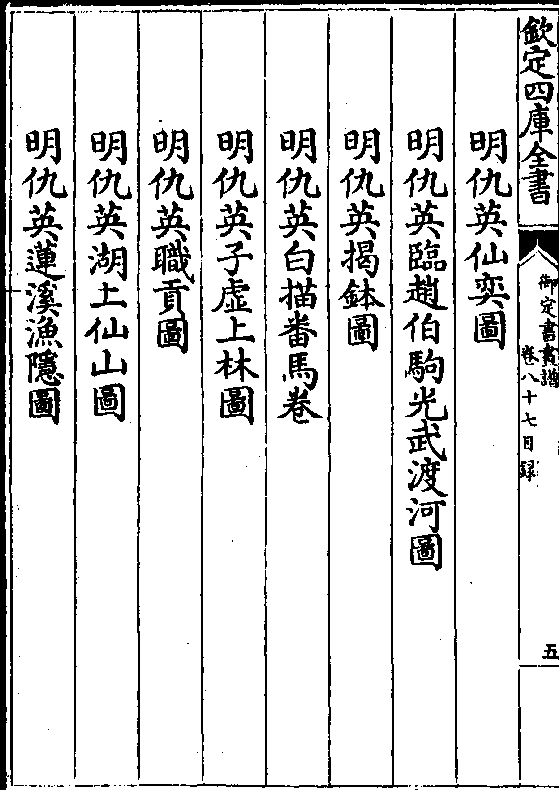 欽定四庫全書
御定書畫譜
卷八十七目録
五
明仇英仙奕圖
明仇英臨趙伯駒光武渡河圖
明仇英揭鉢圖
明仇英白描番馬卷
明仇英子虛上林圖
明仇英職貢圖
明仇英湖上仙山圖
明仇英蓮溪漁隱圖